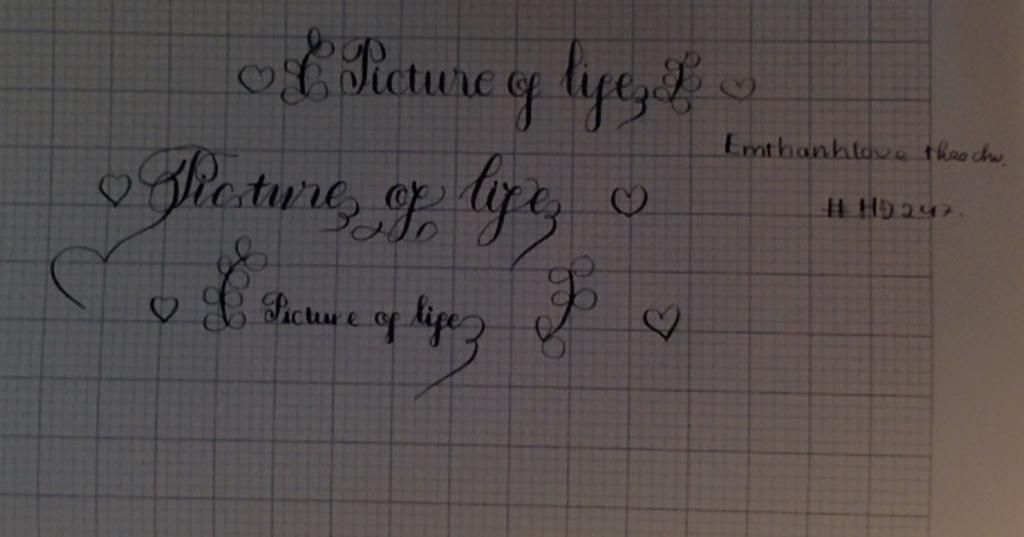 Picture of life
Emthanhlove thaochu.
Picture of life
# HD247.
Picture of life